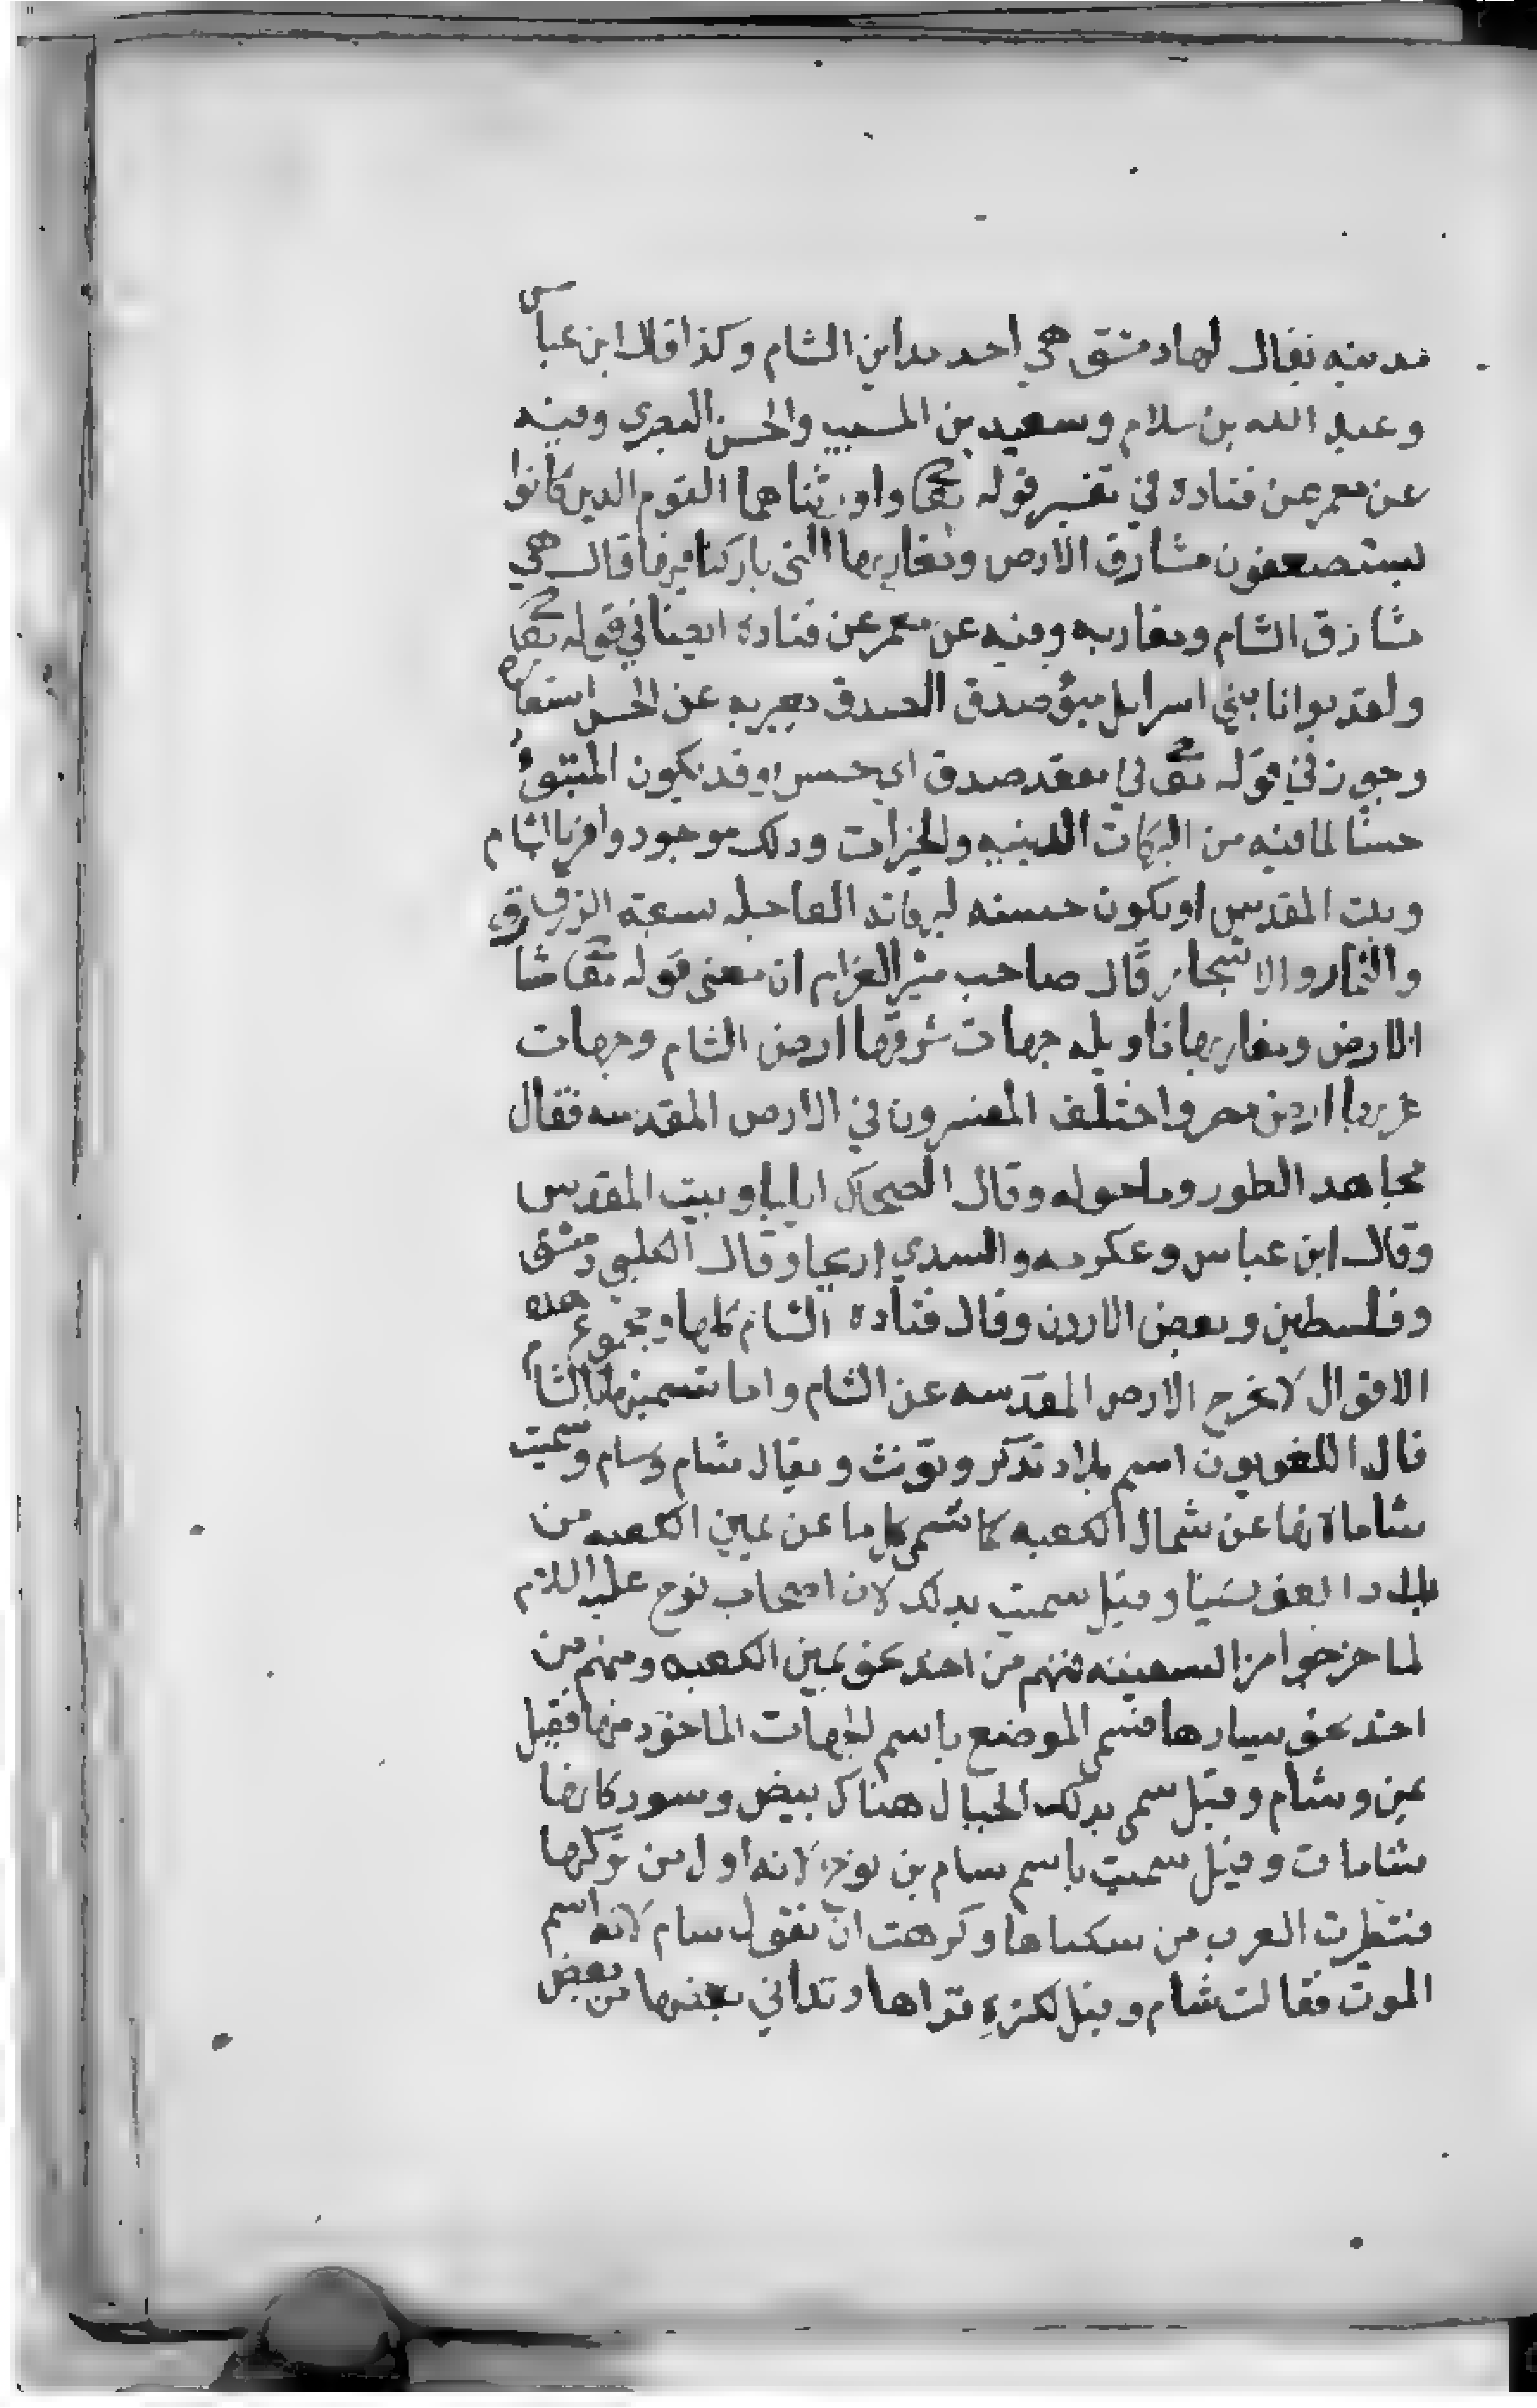 مدينه يقال لها دمشق هي احد مداين الشام وكذا قال ابن عباس
وعبد الله بن سلام وسعيد بن المسيب والحسن البصرى وفيه
عن معمر عن قتادة في تفسير قوله تعا واورثناهما القوم الدين كانوا
يستضعفون مشارق الارض ومغاربها التى باركنا فيها قال هي
مشارق الشام ومغاربه وفيه عن معمر عن قتادة ايضا في قوله تعا
ولقد بوانا بني اسرايل مبوؤ صدق الصدق يعبر به عن الحسن استعاره
وجوز في قوله تعالي مقعد صدق اي حسن وقد يكون المتبوؤ
حسنا لما فيه من البركات الدينيه والخيرات ودلك موجود وافر بالشام
وبيت المقدس او يكون حسنه لبركاته العاجله سعة الرزق
والثمار والاشجار قال صاحب مثير الغرام ان معنى قوله تعا مشا
الارض ومغاربها تاويله جهات شرقها ارض الشام وجهات
غربها ارض مصر واختلف المفسرون في الارض المقدسه فقال
مجاهد الطور وما حوله وقال الضحاك ايليا وبيت المقدس
وقال ابن عباس وعكرمه والسدي اريحا وقال الكلبي دمشق
وفلسطين وبعض الاردن وقال قتادة الشام كلها ومجموع هده
الاقوال لا تخرج الارض المقدسه عن الشام واما تسميتها بالشام
قال اللغويون اسم بلاد تذكر وتؤنث ويقال شام وسام وسميت
شاما لانها عن شمال الكعبه كما سمى كل ما عن يمين الكعبه من
بلاد الغور يمنا وقيل سميت بدلك لان اصحاب نوح عليه السلام
لما خرجوا من السفينه فمنهم من اخد نحو يمين الكعبه ومنهم من
اخد نحو يسارها فسمى الموضع باسم الجهات الماخود منها فقيل
يمن وشام وقيل سمى بدلك لجبال هناك بيض وسود كانها
شامات وقيل سميت باسم سام بن نوح لانه اول من نزلها
فتطيرت العرب من سكناها وكرهت ان تقول سام لانه اسم
الموت فقالت شام وقيل لكثرة قراها وتداني بعضها من بعض